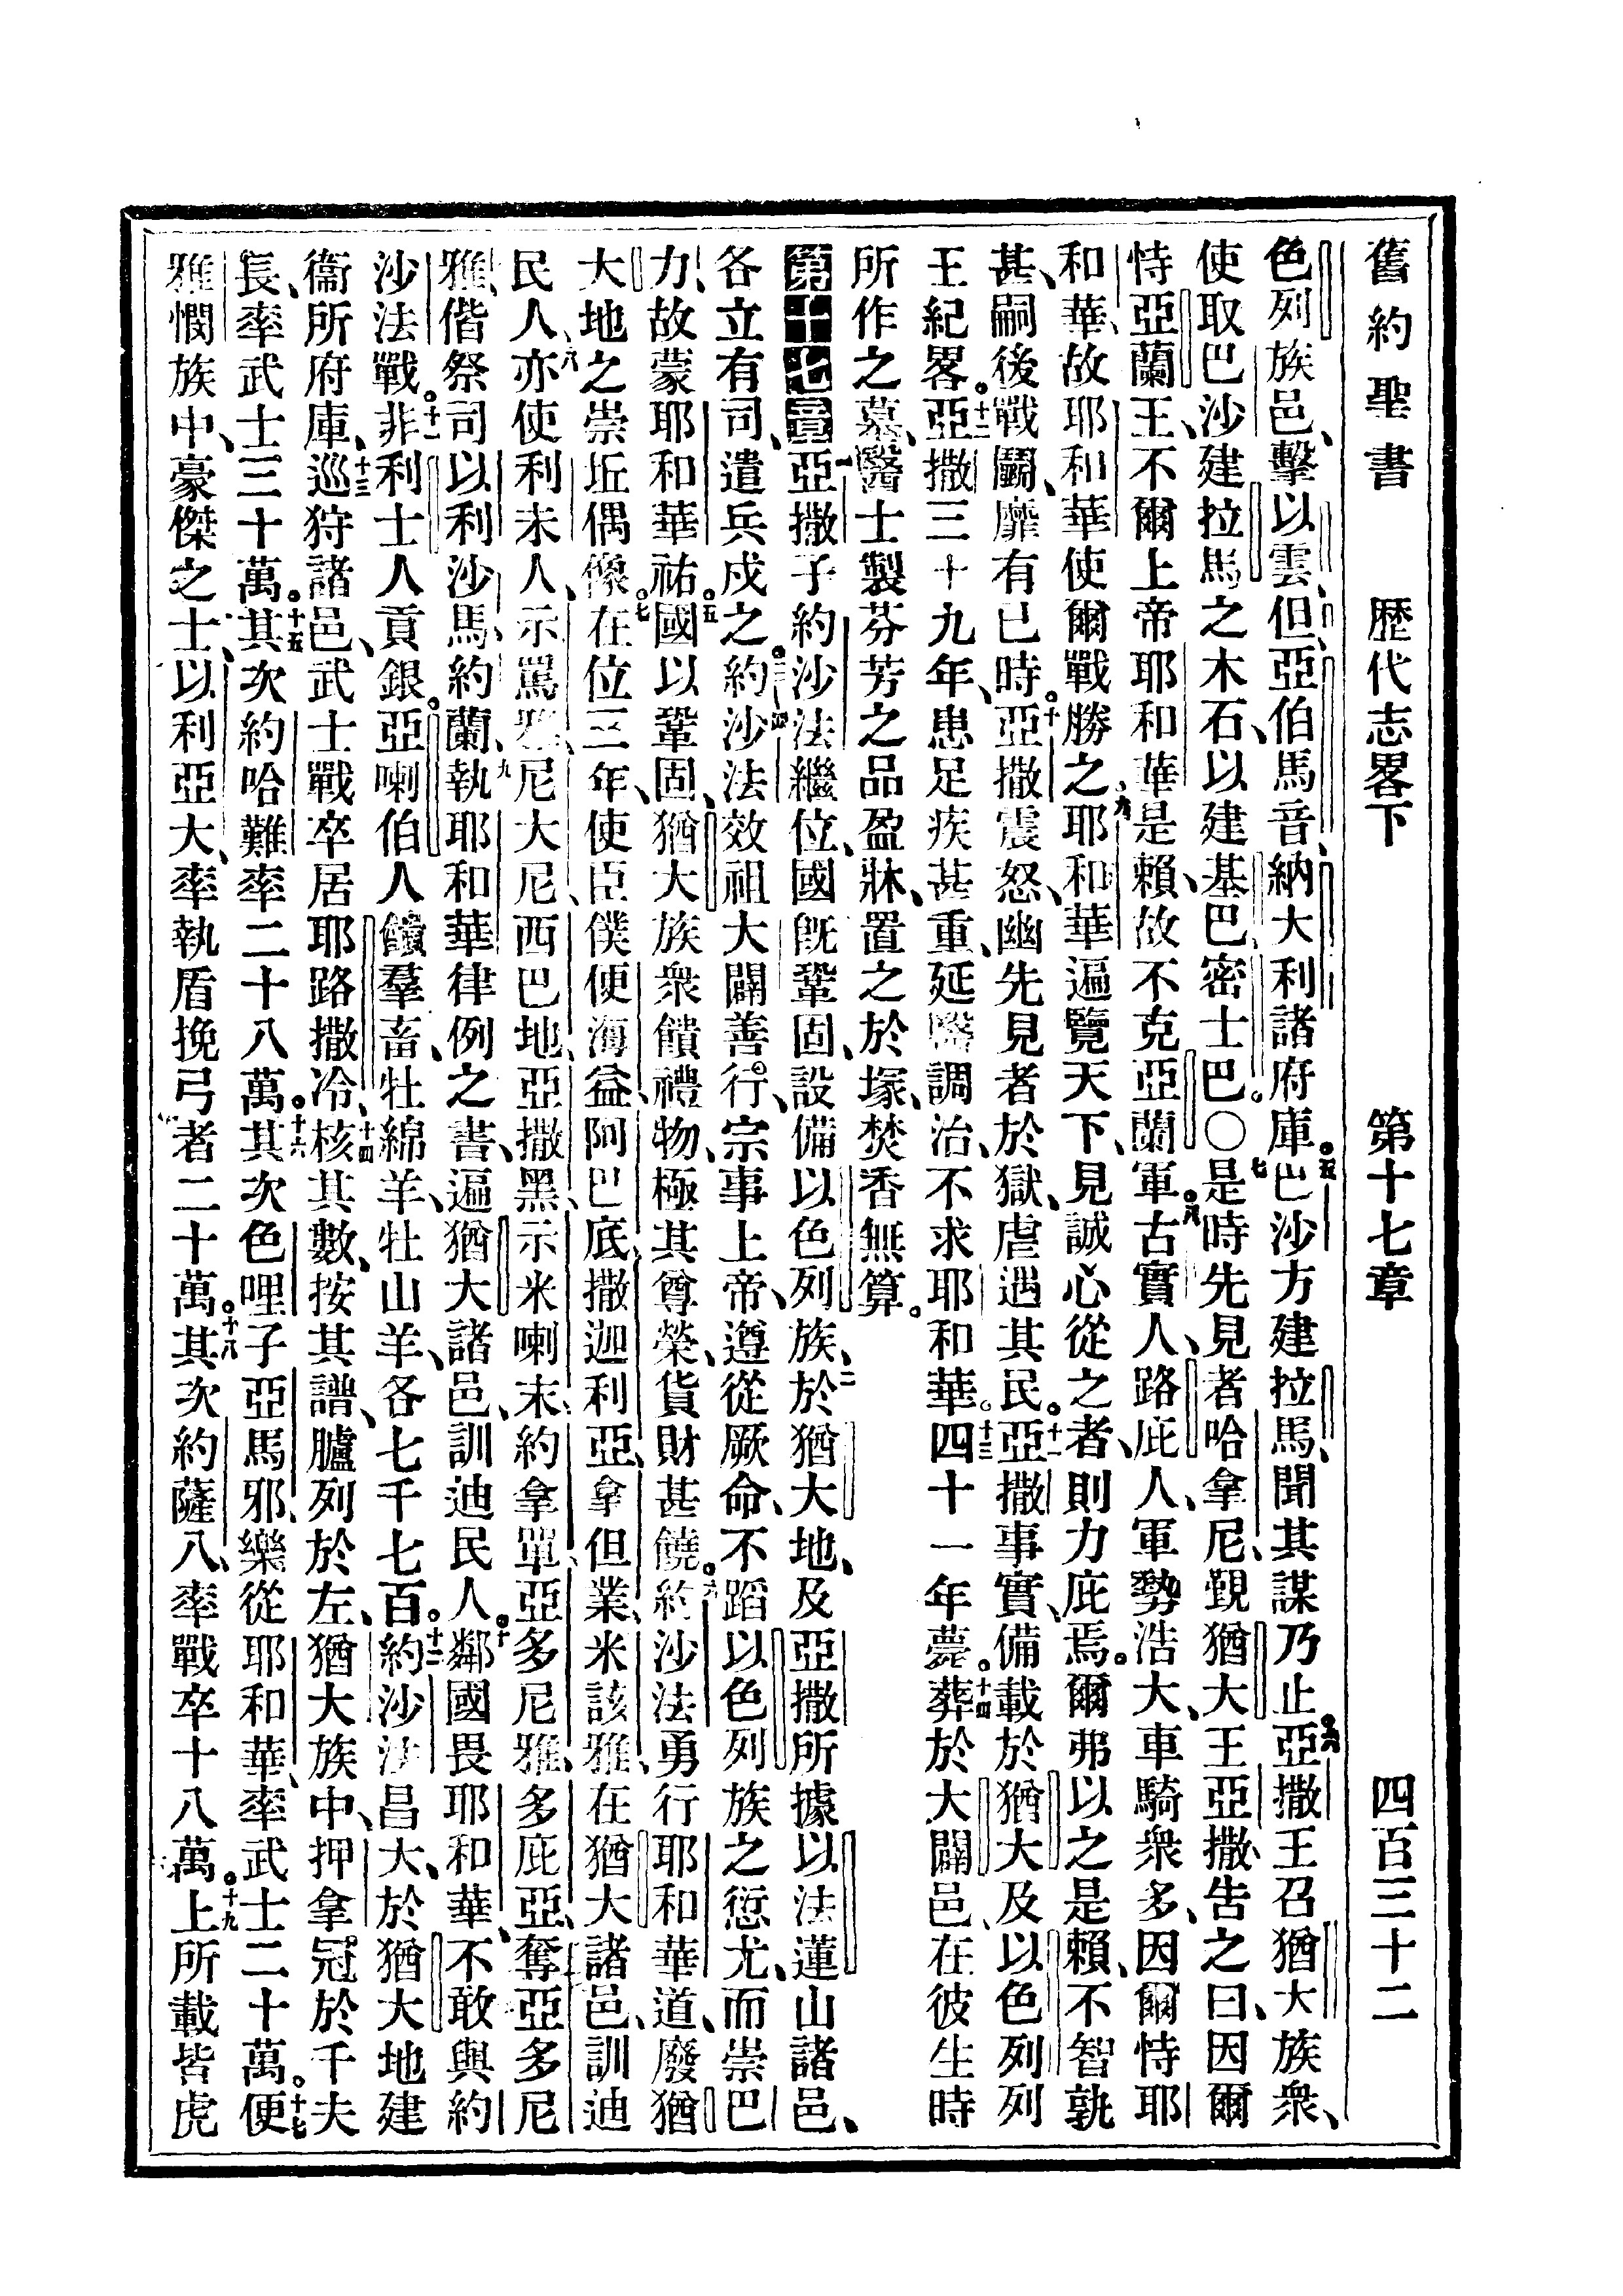 舊約聖書　歷代志畧下　第十七章　四百三十二
色列族邑、擊以雲、但、亞伯馬音、納大利諸府庫。五巴沙方建拉馬、聞其謀乃止。六亞撒王召猶大族衆、
使取巴沙建拉馬之木石、以建基巴、密士巴。○七是時先見者哈拿尼、覲猶大王亞撒、告之曰、因爾
恃亞蘭王、不爾上帝耶和華是賴、故不克亞蘭軍。八古實人、路庇人、軍勢浩大、車騎衆多、因爾恃耶
和華、故耶和華使爾戰勝之、九耶和華遍覽天下、見誠心從之者、則力庇焉。爾弗以之是賴、不智孰
甚、嗣後戰鬭、靡有已時。十亞撒震怒、幽先見者於獄、虐遇其民。十一亞撒事實、備載於猶大及以色列列
王紀畧。十二亞撒三十九年、患足疾甚重、延醫調治、不求耶和華。十三四十一年薨。十四葬於大闢邑、在彼生時
所作之墓、醫士製芬芳之品盈牀、置之於塚、焚香無算。
第十七章　一亞撒子約沙法繼位、國旣鞏固、設備以色列族、二於猶大地、及亞撒所據以法蓮山諸邑、
各立有司、遣兵戍之。三約沙法效祖大闢善行、宗事上帝、四遵從厥命、不蹈以色列族之愆尤、而崇巴
力、故蒙耶和華祐。五國以鞏固、猶大族衆饋禮物、極其尊榮、貨財甚饒。六約沙法勇行耶和華道、廢猶
大地之崇坵偶像。七在位三年、使臣僕便海益、阿巴底、撒迦利亞、拿但業、米該雅、在猶大諸邑、訓迪
民人、八亦使利未人、示罵雅、尼大尼、西巴地、亞撒黑、示米喇末、約拿單、亞多尼雅、多庇亞、奪亞多尼
雅、偕祭司以利沙馬、約蘭、九執耶和華律例之書、遍猶大諸邑、訓迪民人。十鄰國畏耶和華、不敢與約
沙法戰。十一非利士人貢銀。亞喇伯人饋羣畜、牡綿羊、牡山羊、各七千七百。十二約沙法昌大、於猶大地建
衞所府庫、十三巡狩諸邑、武士戰卒居耶路撒冷、十四核其數、按其譜、臚列於左、猶大族中、押拿冠於千夫
長、率武士三十萬。十五其次約哈難率二十八萬。十六其次色哩子亞馬邪、樂從耶和華、率武士二十萬。十七便
雅憫族中、豪傑之士、以利亞大、率執盾挽弓者二十萬。十八其次約薩八、率戰卒十八萬。十九上所載皆虎